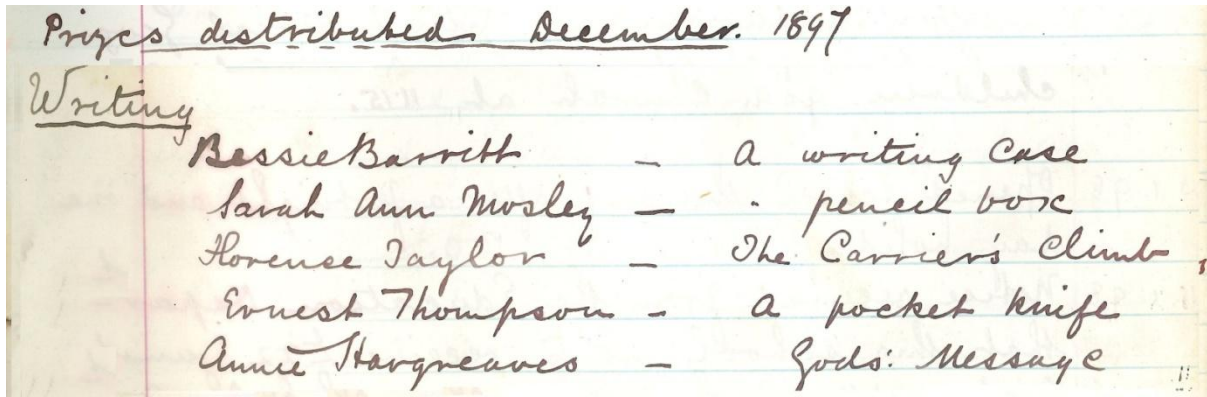 Prizes distributed December. 1897
Writing
Bessie Barritt – A writing Case
Sarah Ann Mosley – " pencil box
Florence Taylor – The Carrier's Climb,
Ernest Thompson – A pocket knife
Annie Hargreaves – Gods: Message